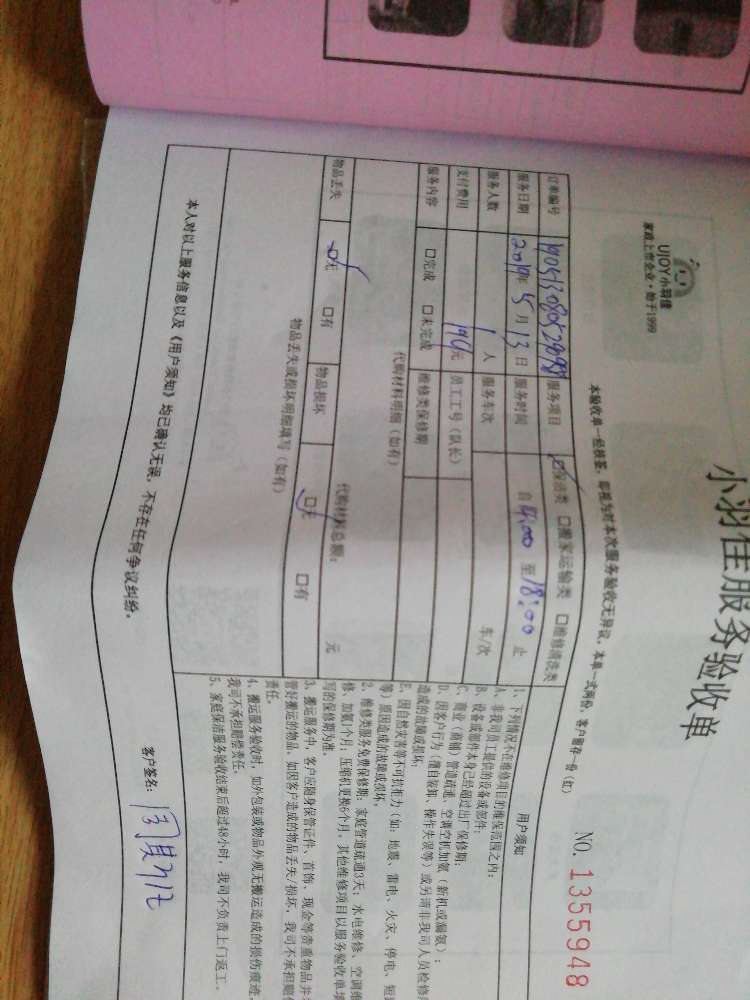 小羽佳服务验收单
UJOY小羽佳
家政上市企业·始于1999
本验收单一经核签，即视为对本次服务验收无异议，本单一式两份，客户留存一份（红）
NO. 1355948
订单编号 服务项目 保洁类 搬家运输类 维修清洗类
服务日期 2019年5月13日 服务时间 自14:00至18:00止
服务人数 1人 服务车次 车/次
支付费用 元 员工工号（队长）
服务内容 完成 未完成 维修类保修期
代购材料明细（如有）
代购材料总额： 元
物品丢失 无 有 物品损坏 无 有
物品丢失或损坏明细填写（如有）
用户须知
1、下列情况不在维修项目的维保范围之内：
A、非我司员工提供的设备或部件；
B、设备或部件本身已经超过出厂保修期；
C、商业（商铺）管道疏通、空调空机加氨（新机或漏氨）；
D、因客户行为（擅自装卸、操作失误等）或另请非我司人员检修
造成的故障或损坏；
E、因自然灾害等不可抗拒力（如：地震、雷电、火灾、停电、短
等）原因造成的故障或损坏。
2、维修类服务免费保修期：家庭管道疏通3天；水电维修、空调维
修、加氨1个月；压缩机更换6个月，其他维修项目以服务验收单填
写的保修期为准。
3、搬运服务中，客户应随身保管证件、首饰、现金等贵重物品并
管好搬运的物品，如因客户造成的物品丢失/损坏，我司不承担赔
责任。
4、搬运服务验收时，如外包装或物品外观无搬运造成的损伤痕迹
我司不承担赔偿责任。
5、家庭保洁服务验收结束后超过48小时，我司不负责上门返工。
本人对以上服务信息以及《用户须知》均已确认无误，不存在任何争议纠纷。
客户签名：